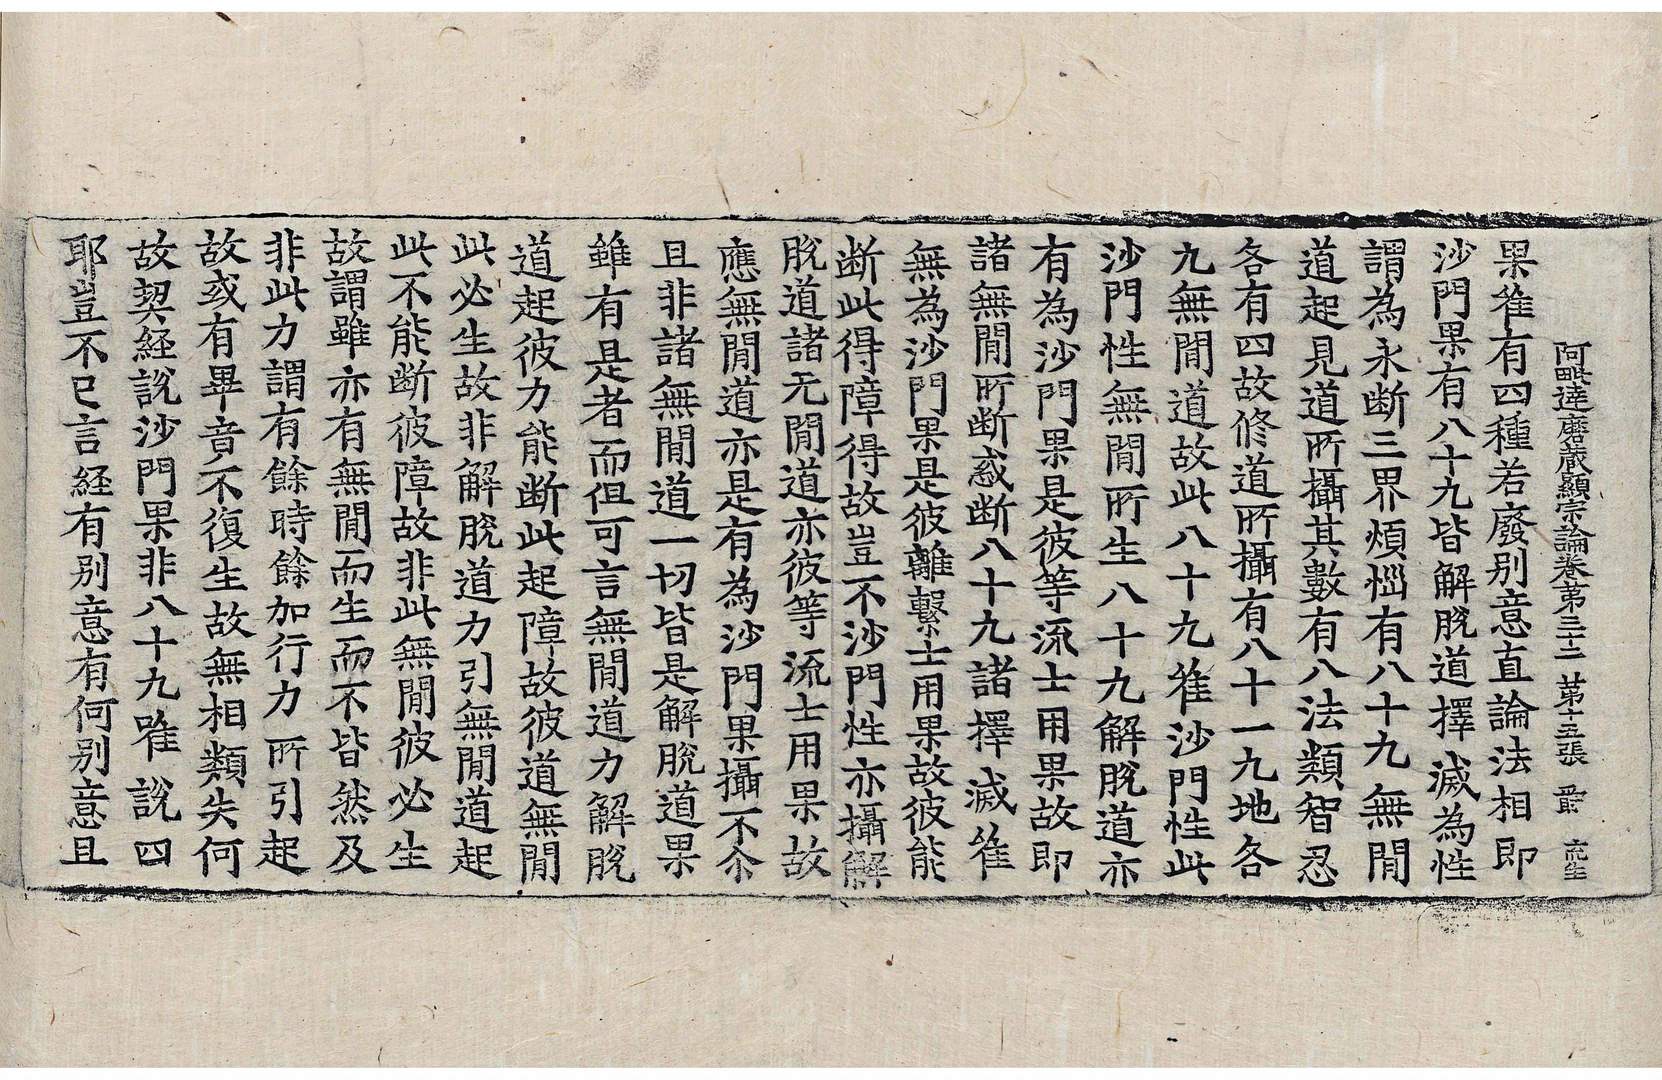 阿毗達磨蔵顯宗論卷第三十二 第十五張 爵 亦生
果唯有四種若廢别意直論法相即
沙門果有八十九皆解脫道擇滅為性
謂為永断三界煩惱有八十九無間
道起見道所攝其數有八法類智忍
各有四故修道所攝有八十一九地各
九無間道故此八十九唯沙門性此
沙門性無間所生八十九解脫道亦
有為沙門果是彼等流士用果故即
諸無間所断惑断八十九諸擇滅唯
無為沙門果是彼離繫士用果故彼能
断此得障得故豈不沙門性亦攝解
脫道諸无間道亦彼等流士用果故
應無間道亦是有為沙門果攝不尒
且非諸無間道一切皆是解脫道果
雖有是者而但可言無間道力解脫
道起彼力能断此起障故彼道無間
此必生故非解脫道力引無間道起
此不能断彼障故非此無間彼必生
故謂雖亦有無間而生而不皆然及
非此力謂有餘時餘加行力所引起
故或有畢竟不復生故無相類失何
故契経說沙門果非八十九唯說四
耶豈不已言経有别意有何别意且